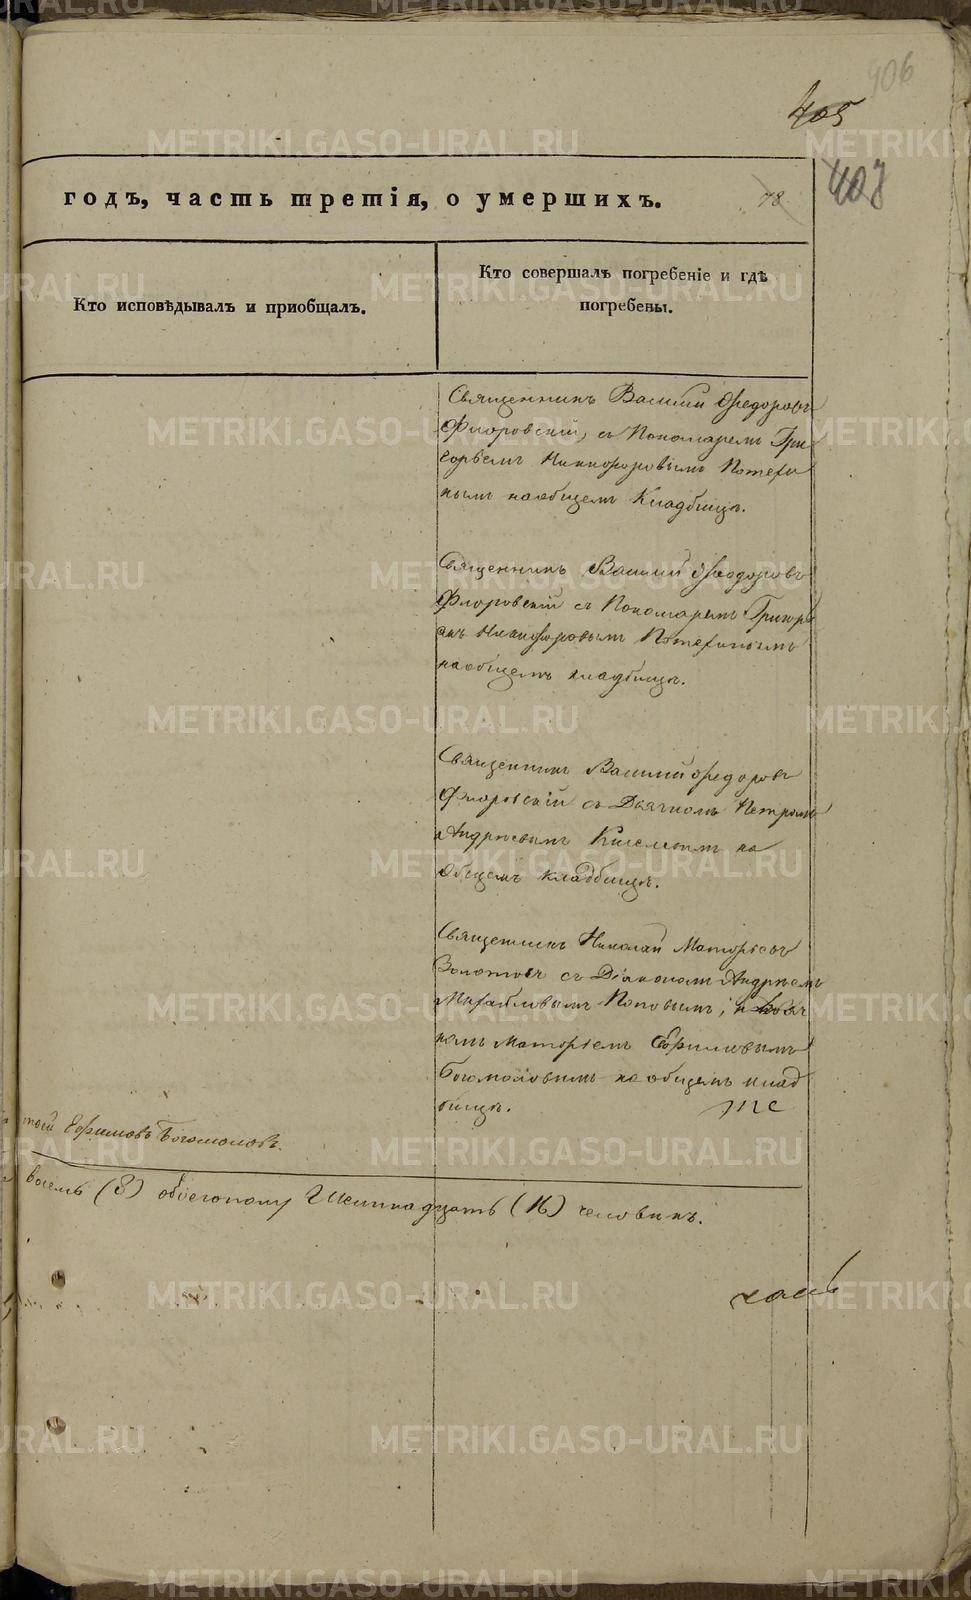 406
405
407
годъ, часть третія, о умершихъ.
78
Кто исповѣдывалъ и приобщалъ.
Кто совершалъ погребеніе и гдѣ
погребены.
Священникъ Василій Ѳедоровъ
Флоровскій, съ Пономаремъ Гри
горьемъ Никифоровымъ Потехи
нымъ на общемъ Кладбищѣ.
Священникъ Василій Ѳеодоровъ
Флоровскій съ Пономаремъ Григорь
емъ Никифоровымъ Потехинымъ
на общемъ кладбищѣ.
Священникъ Василий Ѳедоровъ
Флоровскій съ Дьячкомъ Петромъ
Андреевымъ Киселевымъ на
общемъ кладбищѣ.
Священникъ Николай Матфѣевъ
Золотовъ съ Діакономъ Андреемъ
Михайловымъ Поповымъ, и Дьяч
комъ Матфѣемъ Ефимовымъ
Богомоловымъ на общемъ клад
бищѣ.
тей Ефимовъ Богомоловъ.
восемь (8) обоего полу Шестнадцать (16) человекъ.
часть
METRIKI.GASO-URAL.RU